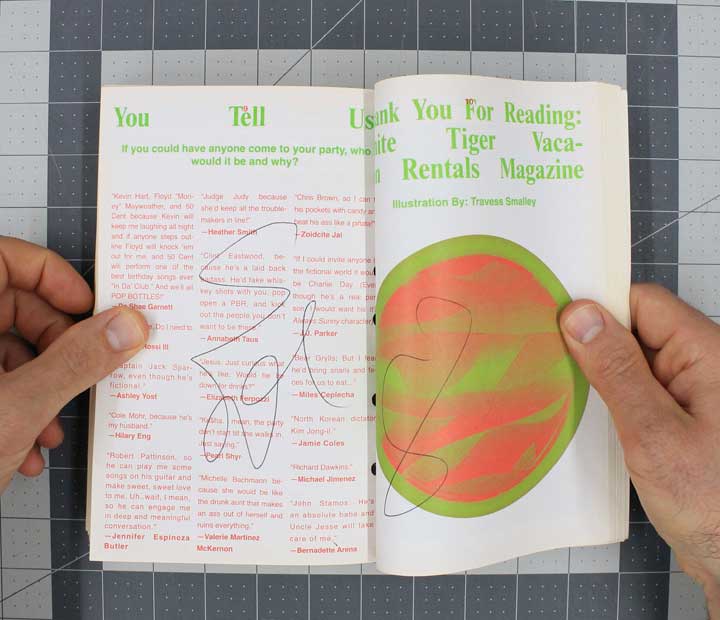 You Tell Us
If you could have anyone come to your party, who
would it be and why?
"Kevin Hart, Floyd "Mon-
ey" Mayweather, and 50
Cent because Kevin will
keep me laughing all night
and if anyone steps out-
line Floyd will knock 'em
out for me, and 50 Cent
will perform one of the
best birthday songs ever
"In Da Club." And we'll all
POP BOTTLES!"
Shae Garnett
Do I need to
Rossi III
"Captain Jack Spar-
row, even though he's
fictional."
—Ashley Yost
"Cole Mohr, because he's
my husband."
—Hilary Eng
"Robert Pattinson, so
he can play me some
songs on his guitar and
make sweet, sweet love
to me. Uh..wait, I mean,
so he can engage me
in deep and meaningful
conversation."
—Jennifer Espinoza
Butler
"Judge Judy because
she'd keep all the trouble-
makers in line!"
—Heather Smith
"Clint Eastwood, be-
cause he's a laid back
badass. He'd take whis-
key shots with you, pop
open a PBR, and kick
out the people you don't
want to be there."
—Annabeth Taus
"Jesus. Just curious what
he's like. Would he be
down for drinks?"
—Elizabeth Ferpozzi
"Ke$ha. I mean, the party
don't start til she walks in.
Just saying."
—Pearl Shyr
"Michelle Bachmann be-
cause she would be like
the drunk aunt that makes
an ass out of herself and
ruins everything."
—Valerie Martinez
McKernon
"Chris Brown, so I can
his pockets with candy an
beat his ass like a piñata!"
—Zoidcite Jai
"If I could invite anyone
the fictional world it wou
be Charlie Day (Eve
though he's a real per
son, I would want his It
Always Sunny character.
—J.U. Parker
"Bear Grylls; But I fea
he'd bring snails and fe-
ces for us to eat..."
—Miles Ceplecha
"North Korean dictator
Kim Jong-il."
—Jamie Coles
"Richard Dawkins."
—Michael Jimenez
"John Stamos... He's
an absolute babe and
Uncle Jesse will take
care of me."
—Bernadette Arena
101
ank You For Reading:
ite Tiger Vaca-
n Rentals Magazine
Illustration By: Travess Smalley